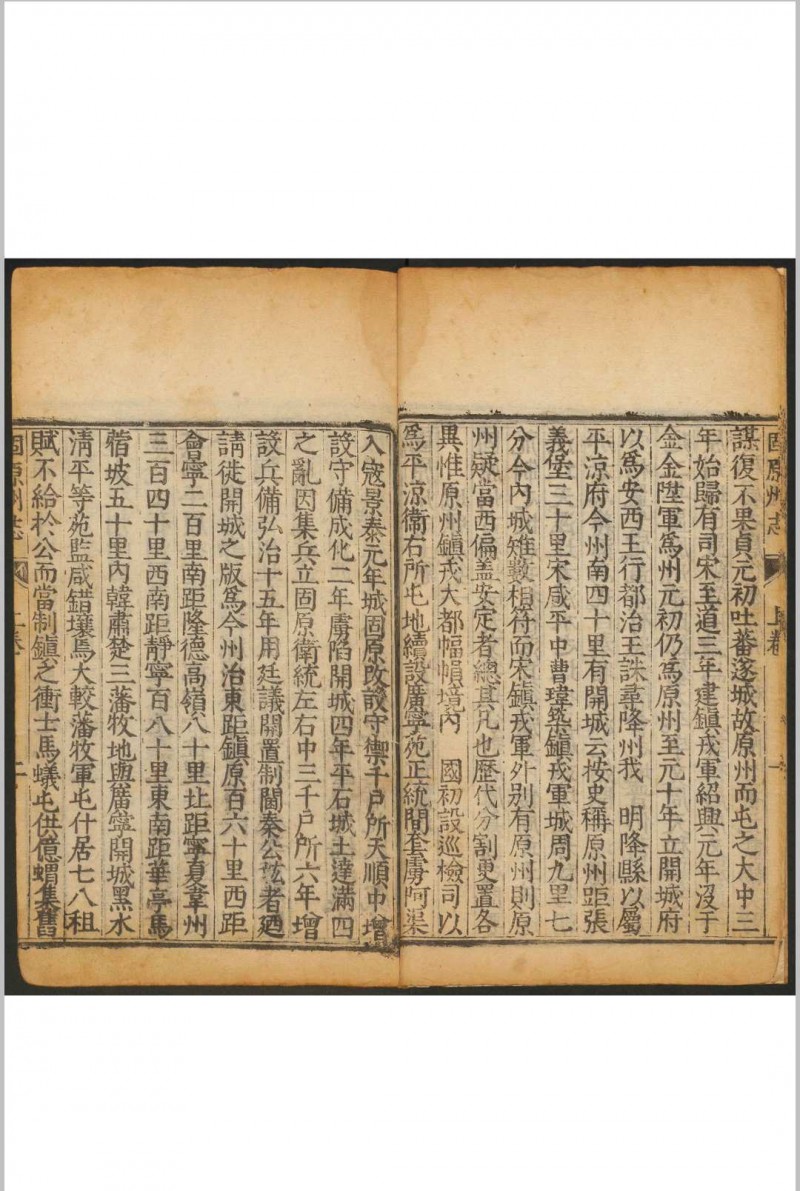 固原州志 上卷 一
謀復不果貞元初吐蕃遂城故原州而屯之大中三
年始歸有司宋至道三年建鎮戎軍紹興元年沒于
金金陞軍為州元初仍為原州至元十年立開城府
以為安西王行都治王誅尋降州我 明降縣以屬
平涼府今州南四十里有開城云按史稱原州距張
義堡三十里宋咸平中曹瑋築鎮戎軍城周九里七
分今內城雉數相符而宋鎮戎軍外別有原州則原
州疑當西偏蓋安定者總其凡也歷代分割更置各
異惟原州鎮戎大都幅幀境內 國初設巡檢司以
為平涼衞右所屯地續設廣寧苑正統間套虜阿渠
入寇景泰元年城固原改設守禦千戶所天順中增
設守備成化二年虜陷開城四年平石城土達滿四
之亂因集兵立固原衛統左右中三千戶所六年增
設兵備弘治十五年用廷議開置制閫秦公紘者廼
請徙開城之版爲今州治東距鎮原百六十里西距
會寧二百里南距隆德高嶺八十里北距寧夏韋州
三百四十里西南距靜寧百八十里東南距華亭馬
蓿坡五十里內韓肅楚三藩牧地與廣寧開城黑水
清平等苑監咸錯壤焉大較藩牧軍屯什居七八租
賦不給於公而當制鎮之衝士馬蟻屯供億蝟集舊
固原州志 上卷 二